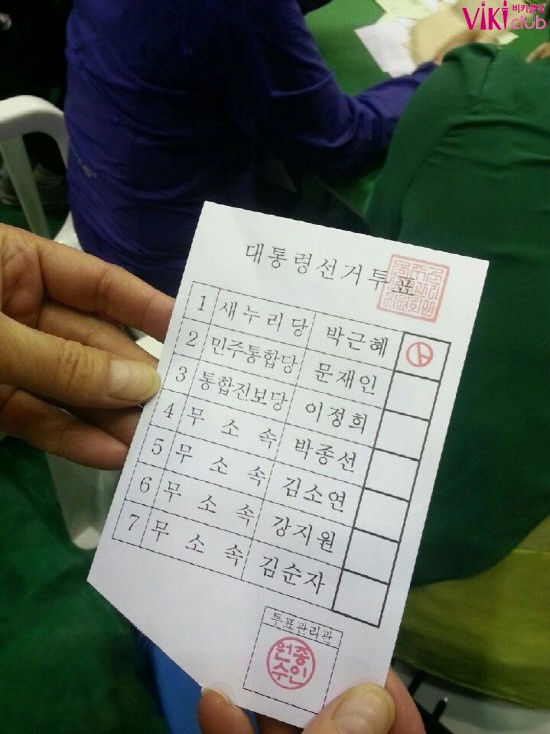 비키클럽
Viki club
대통령선거투표
1 새누리당 박근혜
2 민주통합당 문재인
3 통합진보당 이정희
4 무소속 박종선
5 무소속 김소연
6 무소속 강지원
7 무소속 김순자
투표관리관